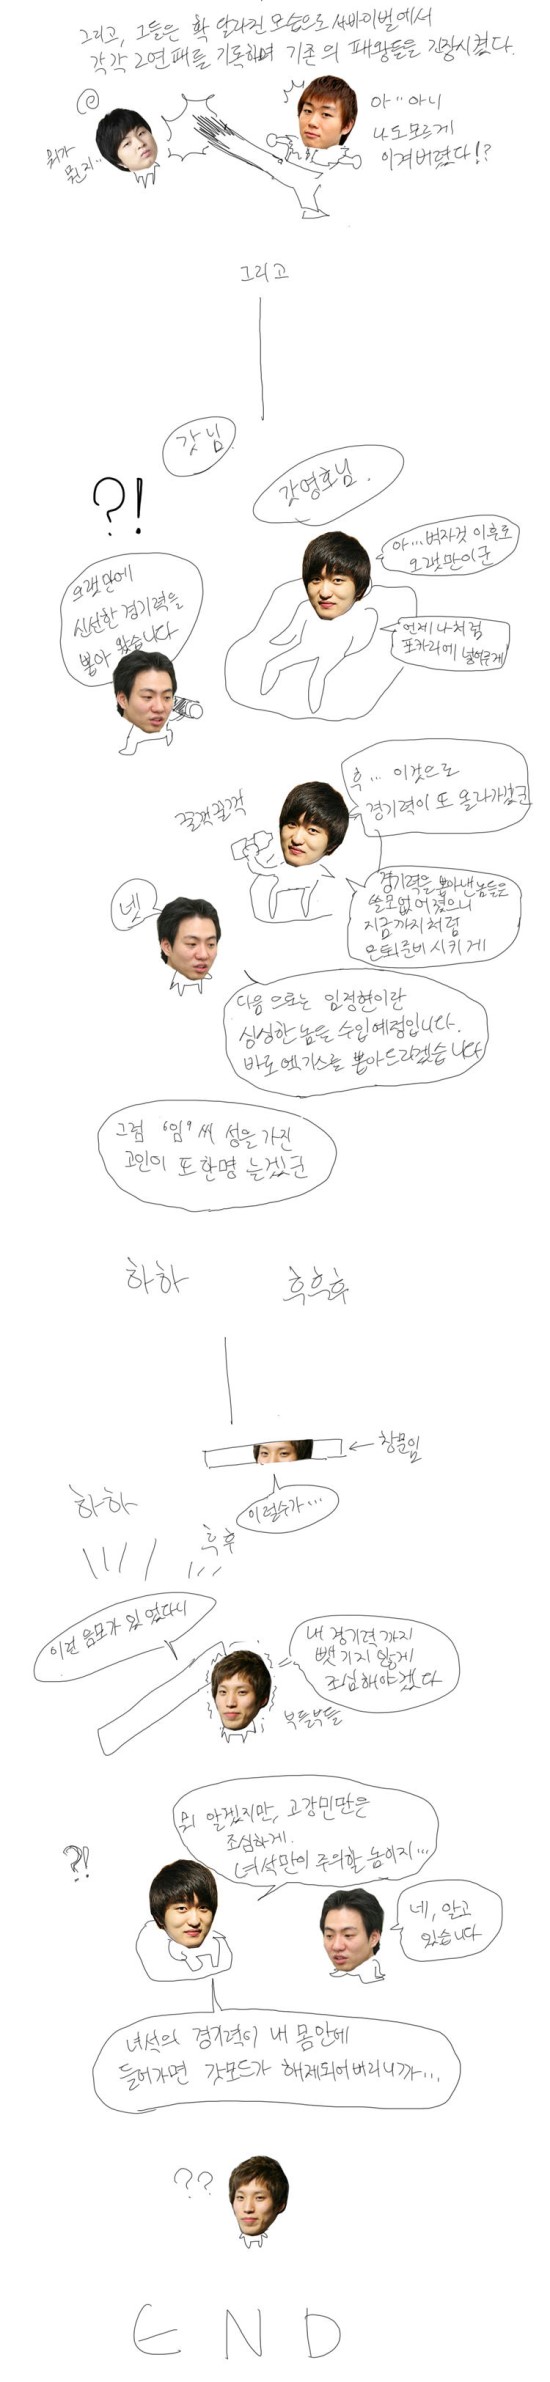 그리고, 그들은 확 달라진 모습으로 서바이벌에서
각각 2연패를 기록하며 기존의 패왕들을 긴장시켰다.
뭐가
뭔지..
아..아니
나도모르게
이겨버렸다!?
그리고
갓님
갓영호님.
?!
아... 벼자것 이후로
오랫만이군
오랫만에
신선한 경기력을
뽑아 왔습니다
언제나처럼
포카리에 넣어주게
꿀꺽꿀꺽
후... 이것으로
경기력이 또 올라가겠군
경기력을 뽑아낸 놈들은
쓸모없어졌으니
지금까지처럼
은퇴준비시키게
넷
다음으로는 임정현이란
싱싱한 놈을 수입예정입니다.
바로 엑기스를 뽑아드리겠습니다
그럼 '임'씨 성을 가진
고인이 또 한명 늘겠군
하하
흑흑후
← 창문임
이럴수가...
하하
흑후
이런 음모가 있었다니
내 경기력까지
뺏기지 않게
조심해야겠다
부들부들
뭐 알겠지만, 고강민만은
조심하게.
녀석만이 주의할 놈이지...
?!
네, 알고
있습니다
녀석의 경기력이 내 몸안에
들어가면 갓모드가 해제되어버리니까...
??
END